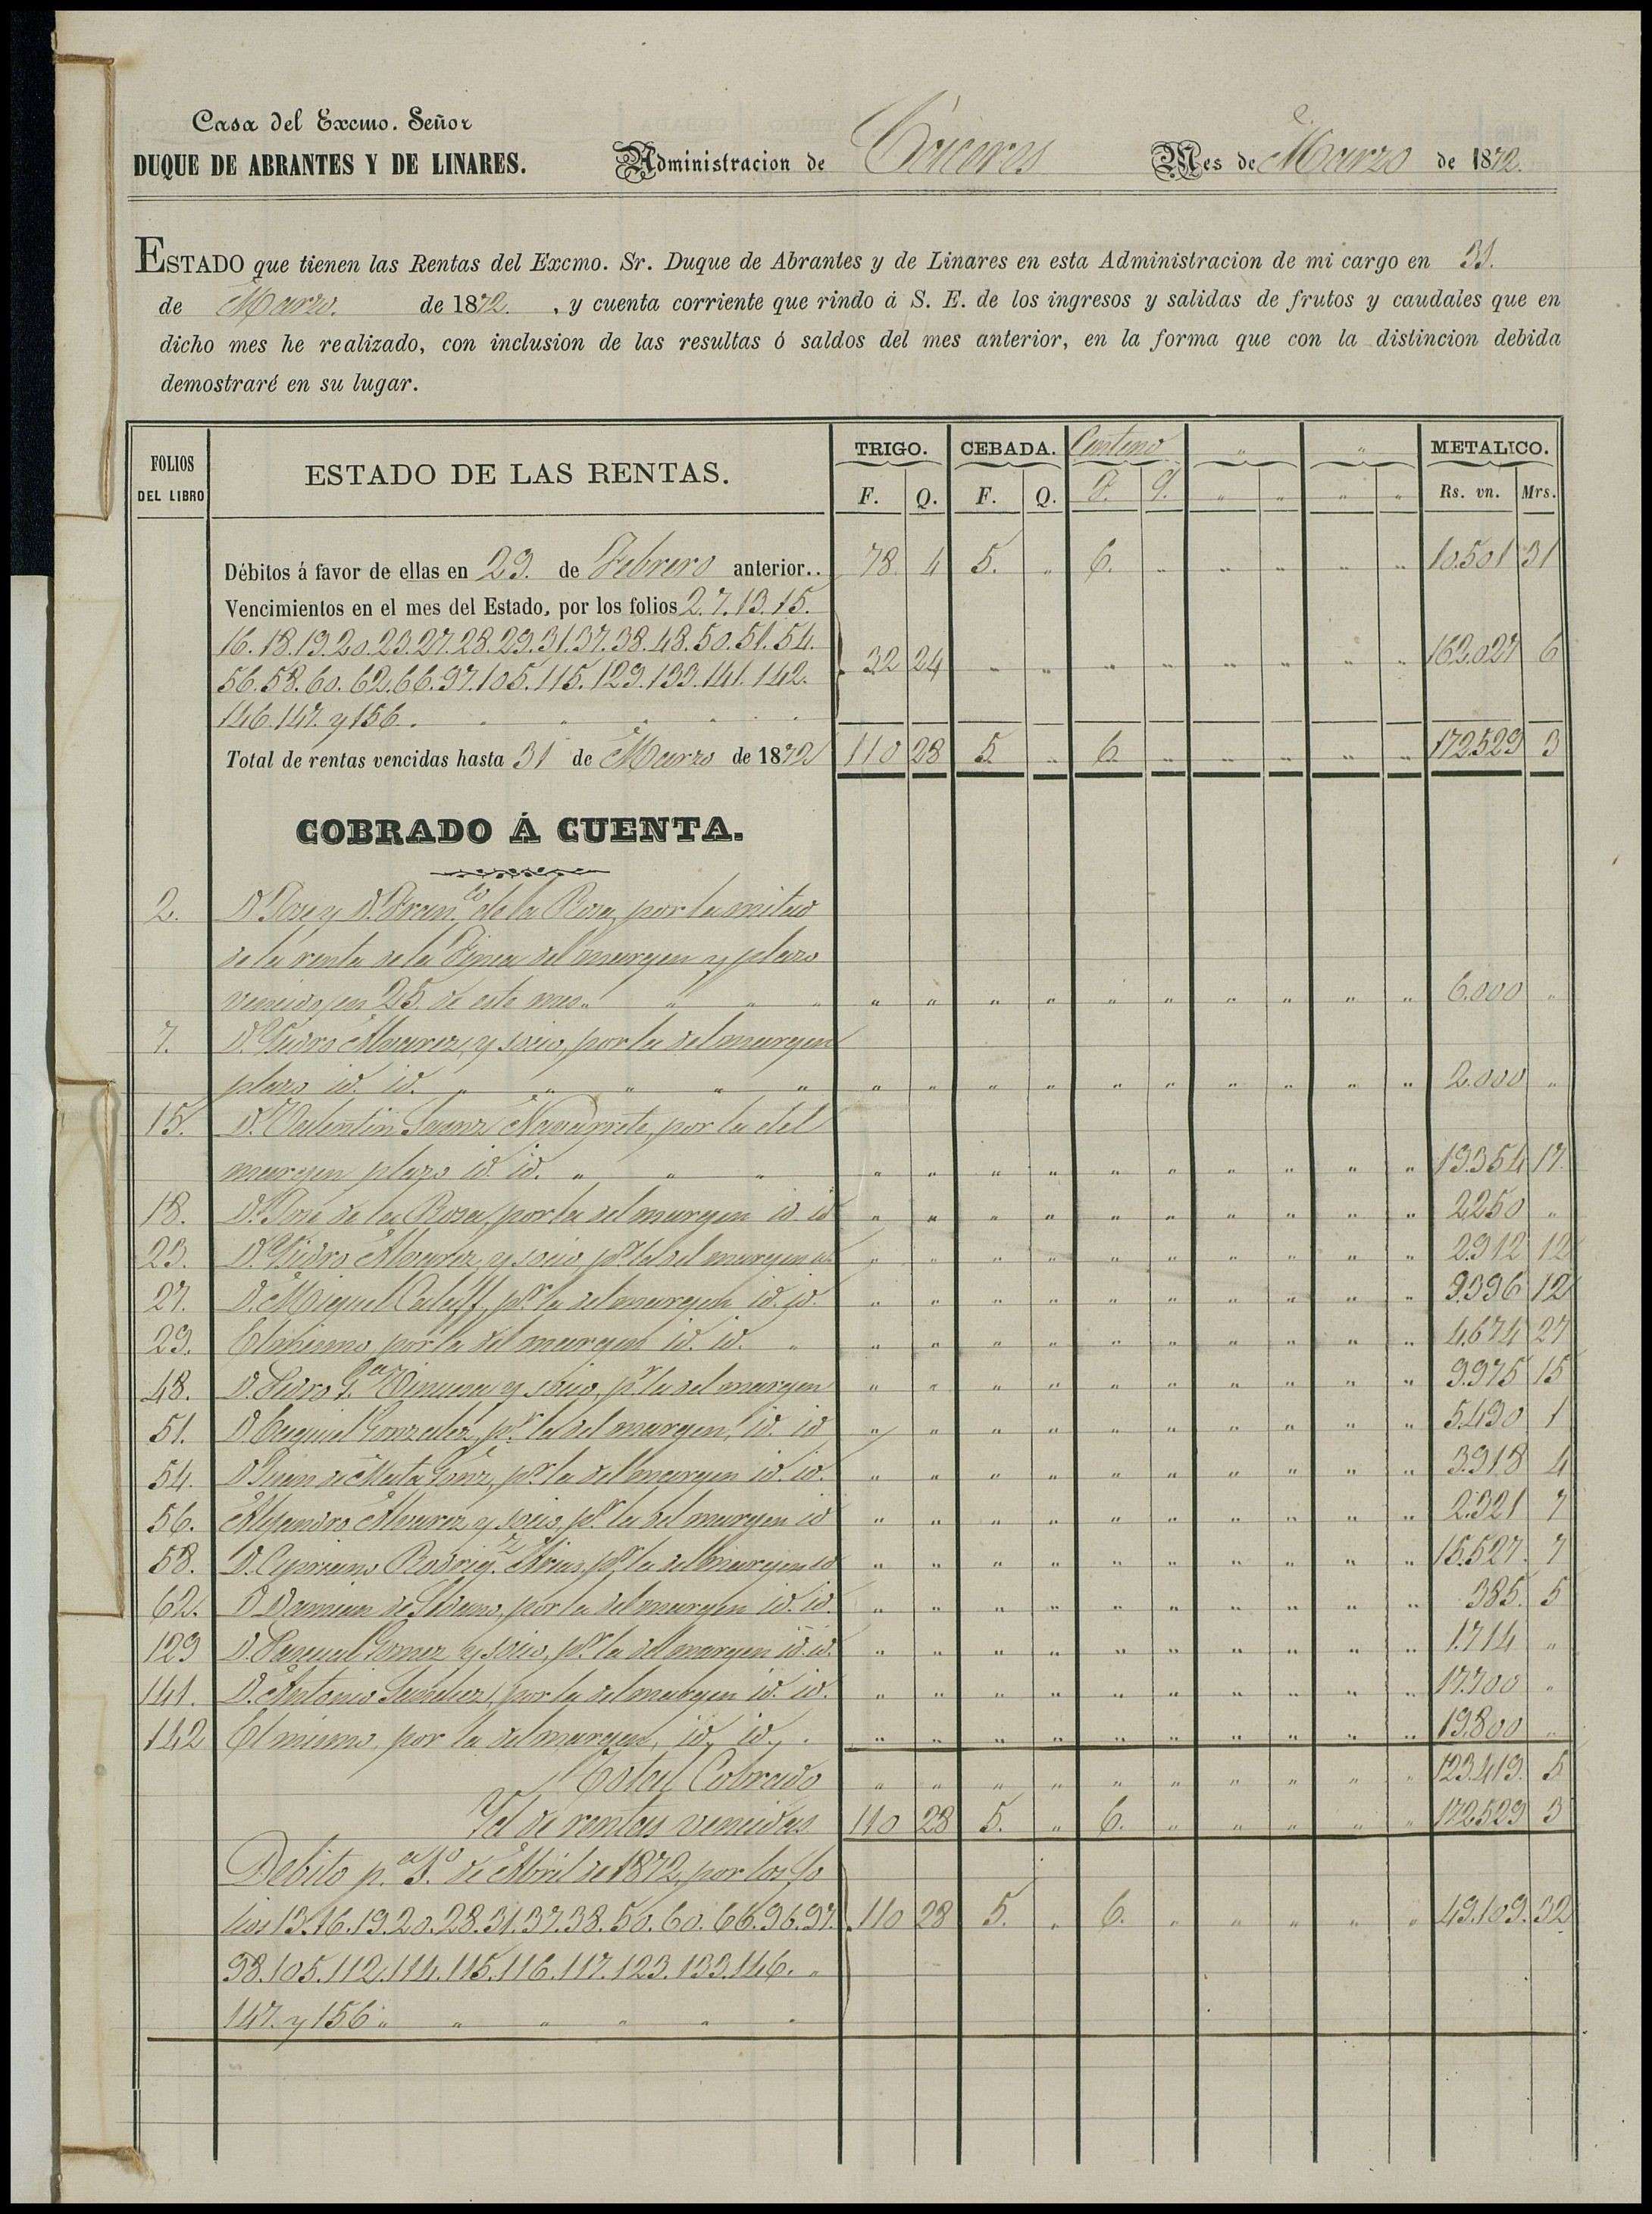 Casa del Excmo. Señor
DUQUE DE ABRANTES Y DE LINARES.
Administracion de Cáceres
Mes de Marzo de 1872.
ESTADO que tienen las Rentas del Excmo. Sr. Duque de Abrantes y de Linares en esta Administracion de mi cargo en 31.
de Marzo. de 1872. , y cuenta corriente que rindo á S. E. de los ingresos y salidas de frutos y caudales que en
dicho mes he realizado, con inclusion de las resultas ó saldos del mes anterior, en la forma que con la distincion debida
demostraré en su lugar.
FOLIOS DEL LIBRO ESTADO DE LAS RENTAS. TRIGO. CEBADA. Centeno " " METALICO.
F. Q. F. Q. F. Q. " " " " Rs. vn. Mrs.
Débitos á favor de ellas en 29. de Febrero anterior.. 78. 4 5. " 6. " " " " " 10.501 31
Vencimientos en el mes del Estado, por los folios 2. 7. 13. 15.
16. 18. 19. 20. 23. 27. 28. 29. 31. 37. 38. 48. 50. 51. 54.
56. 58. 60. 62. 66. 97. 105. 115. 129. 133. 141. 142. 32 24 " " " " " " " " 162.027 6
146. 147. y 156. " " " " "
Total de rentas vencidas hasta 31 de Marzo de 1872 110 28 5. " 6. " " " " " 172.529 3
COBRADO Á CUENTA.
2. Dn. José y Dn. Franco. de la Rosa, por la mitad
de la renta de la Finca del margen y plazo
vencido en 25. de este mes. " " " " " " " " " " " " " 6.000 "
7. Dn. Ysidro Alvarez, y socio, por la del margen
plazo id. id. " " " " " " " " " " " " " " " 2.000 "
15. Dn. Valentin Saenz Navarrete, por la del
margen plazo id. id. " " " " " " " " " " " " " 13.354 17.
18. Dn. José de la Rosa, por la del margen id. id " " " " " " " " " " 2.250 "
23. Dn. Ysidro Alvarez, y socio, pr. la del margen id " " " " " " " " " " 2.912 12
27. D. Miguel Calaff, pr. la del margen id. id. " " " " " " " " " " 9.396 12
29. El mismo, por la del margen id. id. " " " " " " " " " " " 4.674 27
48. D. Pedro Ga. Vinuesa y socio, pr. la del margen " " " " " " " " " " 9.975 15
51. D Ezequiel Gonzalez, pr. la del margen, id. id " " " " " " " " " " 5.490 1
54. D Juan de Mata Gonz, pr. la del margen id. id. " " " " " " " " " " 3.918 4
56. Alejandro Alvarez y socio, pr. la del margen id " " " " " " " " " " 2.321 7
58. D. Cipriano Rodrigz. Arias, pr. la del margen id " " " " " " " " " " 15.527. 7
62. D Damian de Sedano, por la del margen id. id. " " " " " " " " " " 385. 5
129 D. Pascual Gomez y socio, pr. la del margen id. id. " " " " " " " " " " 1.714 "
141. D. Antonio Sanchez, por la del margen id. id. " " " " " " " " " " 17.700 "
142 El mismo, por la del margen, id. id. " " " " " " " " " " " 19.800 "
Total Cobrado " " " " " " " " " " 123.419. 5
Yd de rentas vencidas 110 28 5. " 6. " " " " " 172.529 3
Debito pa. 1o. de Abril de 1872, por los fo
lios 13. 16. 19. 20. 28. 31. 37. 38. 50. 60. 66. 96. 97. 110 28 5. " 6. " " " " " 49.109. 32
98. 105. 112. 114. 115. 116. 117. 123. 133. 146. "
147. y 156. " " " " " "